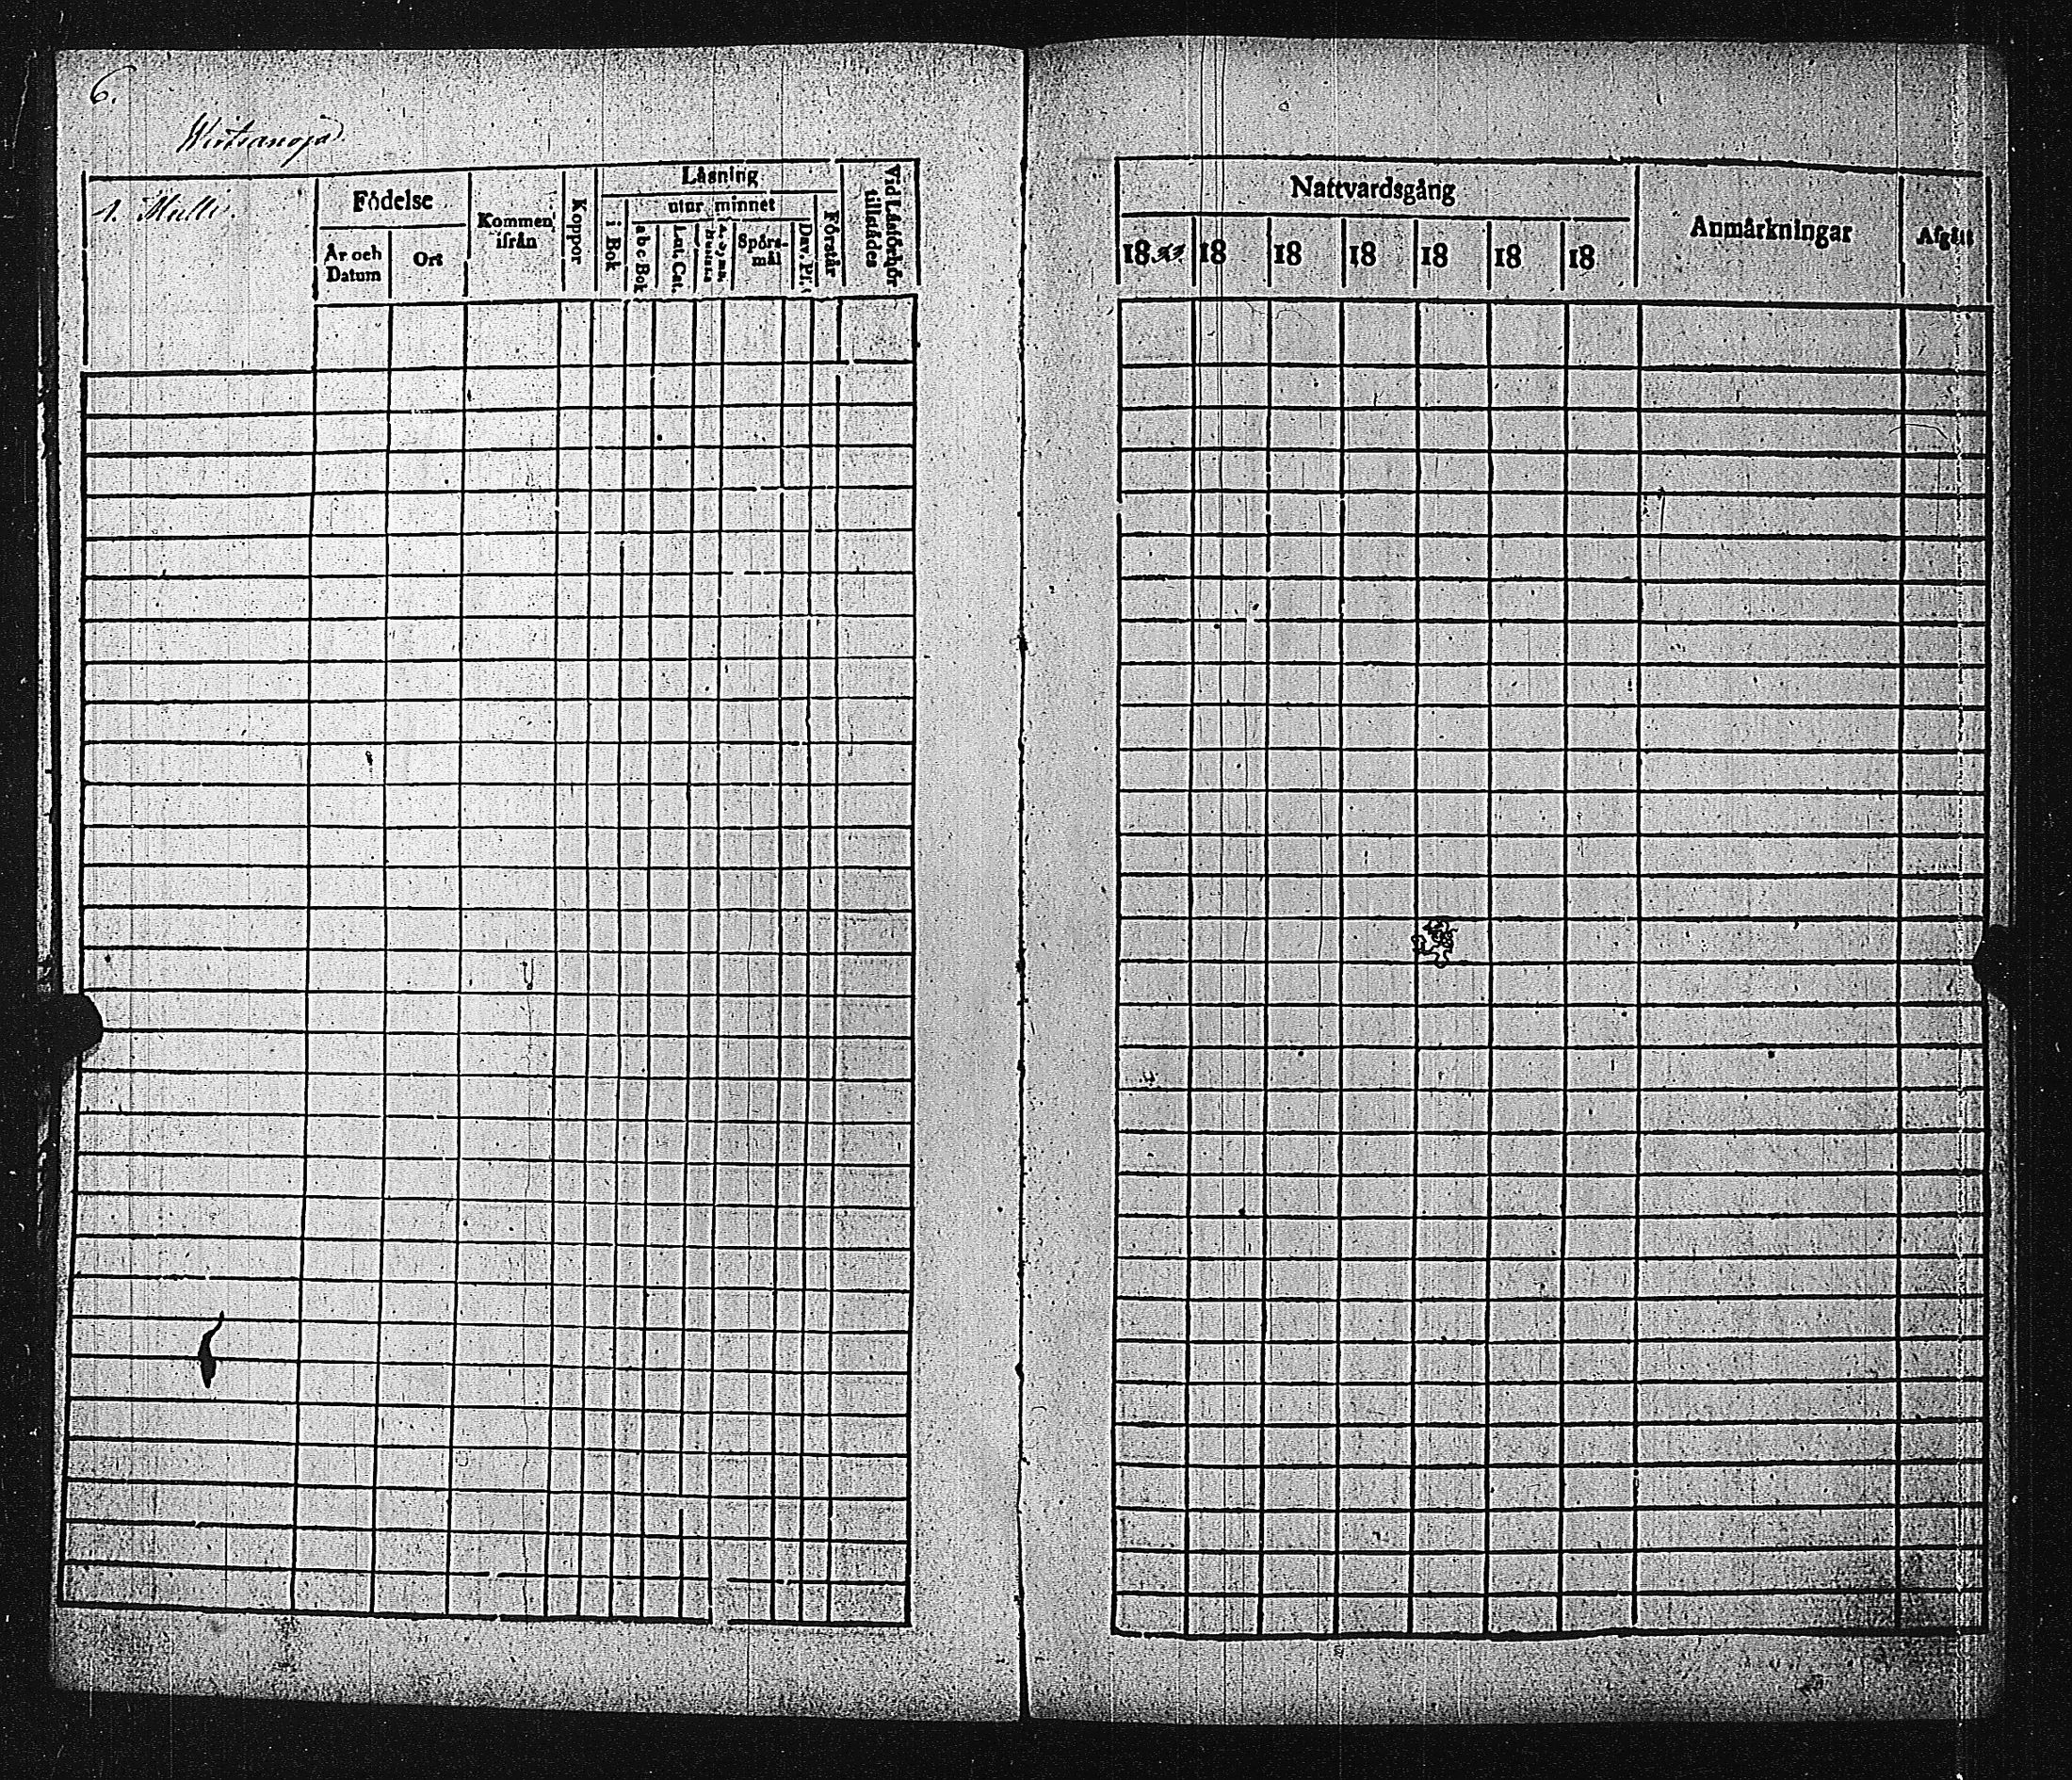 6.
Wirtsanoja
1. Mulli.
Födelse
År och Datum
Ort
Kommen ifrån
Koppor
Låsning
i Bok
utur minnet
a b c Bok
Lut. Cat.
Spörsmål
Dav. Ps.
Förstår
Vid Låsförhör tillstädes
Nattvardsgång
18
18
18
18
18
18
18
Anmärkningar
Afgått